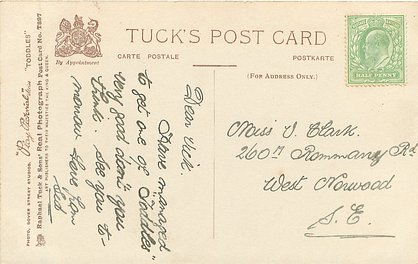 TUCK'S POST CARD
CARTE POSTALE
POSTKARTE
By Appointment
(FOR ADDRESS ONLY.)
HALF PENNY
Dear Vick.
Have managed
to get one of "Toddles"
very good don't you
think. See you to-
morrow Love from
Sid
Miss V. Clark.
260 Rommany Rd
West Norwood
S.E.
"TODDLES"
Raphael Tuck & Sons' Real Photograph Post Card No. T857
ART PUBLISHERS TO THEIR MAJESTIES THE KING & QUEEN.
PHOTO, DOVER STREET STUDIOS.